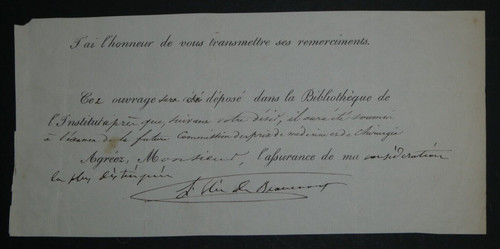 J'ai l'honneur de vous transmettre ses remercîments.
Cet ouvrage sera déposé dans la Bibliothèque de
l'Institut après que, suivant votre désir, il aura été soumis
à l'examen de la future Commission des prix de médecine et de chirurgie
Agréez, Monsieur, l'assurance de ma considération
la plus distinguée
Élie de Beaumont